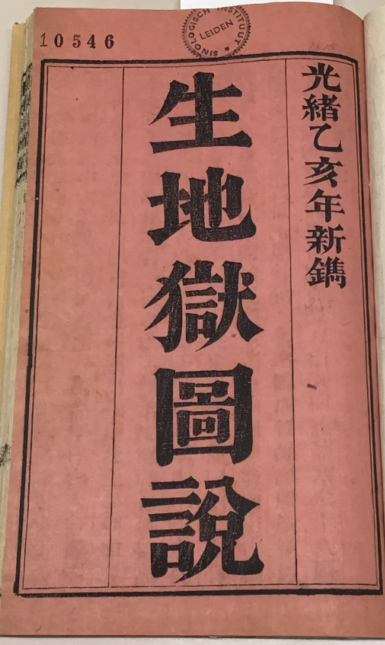 10546
SINOLOGISCH INSTITUUT
LEIDEN
光緒乙亥年新鐫
生地獄圖說